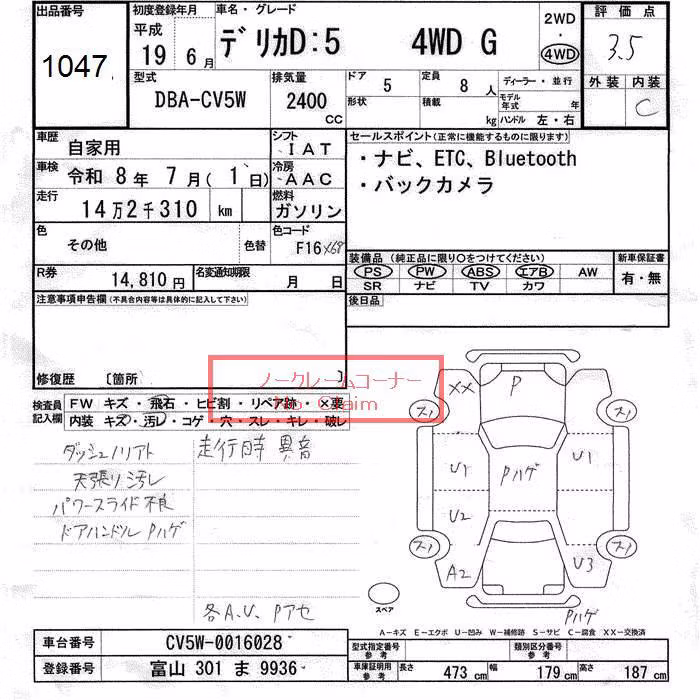 出品番号 初度登録年月 車名・グレード 2WD 評価点
1047 平成 19年 6月 デリカD:5 4WD G 4WD 3.5
型式 排気量 ドア 定員 ディーラー・並行 外装 内装
DBA-CV5W 2400 cc 5 8人 C
形状 積載 kg モデル年式 年 ハンドル 左・右
車歴 自家用 シフト IAT セールスポイント(正常に機能するものに限ります)
車検 令和 8年 7月(1日) 冷房 AAC ・ナビ、ETC、Bluetooth
走行 14万2千310 km 燃料 ガソリン ・バックカメラ
色 その他 色替 色コード F16 X68
装備品(純正品に限り○をつけてください) 新車保証書
R券 14,810円 名変通知期限 月 日 PS PW ABS エアB AW 有・無
SR ナビ TV カワ
注意事項申告欄(不具合内容等は具体的に記入して下さい) 後日品
修復歴 〔箇所 〕
ノークレームコーナー
No Claim
検査員記入欄 FW キズ・飛石・ヒビ割・リペア跡・×要
内装 キズ・汚れ・コゲ・穴・スレ・キレ・破レ
ダッシュノリアト 走行時 異音
天張り汚レ
パワースライド不良
ドアハンドルPハゲ
各A.U、Pアセ
XX P
スリ スリ
U1 Pハゲ U1
U2
スリ スリ
A2 U3
スペア Pハゲ
A−キズ E−エクボ U−凹み W−補修跡 S−サビ C−腐食 XX−交換済
車台番号 CV5W-0016028 型式指定番号 参考 類別区分番号 参考
登録番号 富山 301 ま 9936 車庫証明用 参考 長さ 473cm 幅 179cm 高さ 187cm